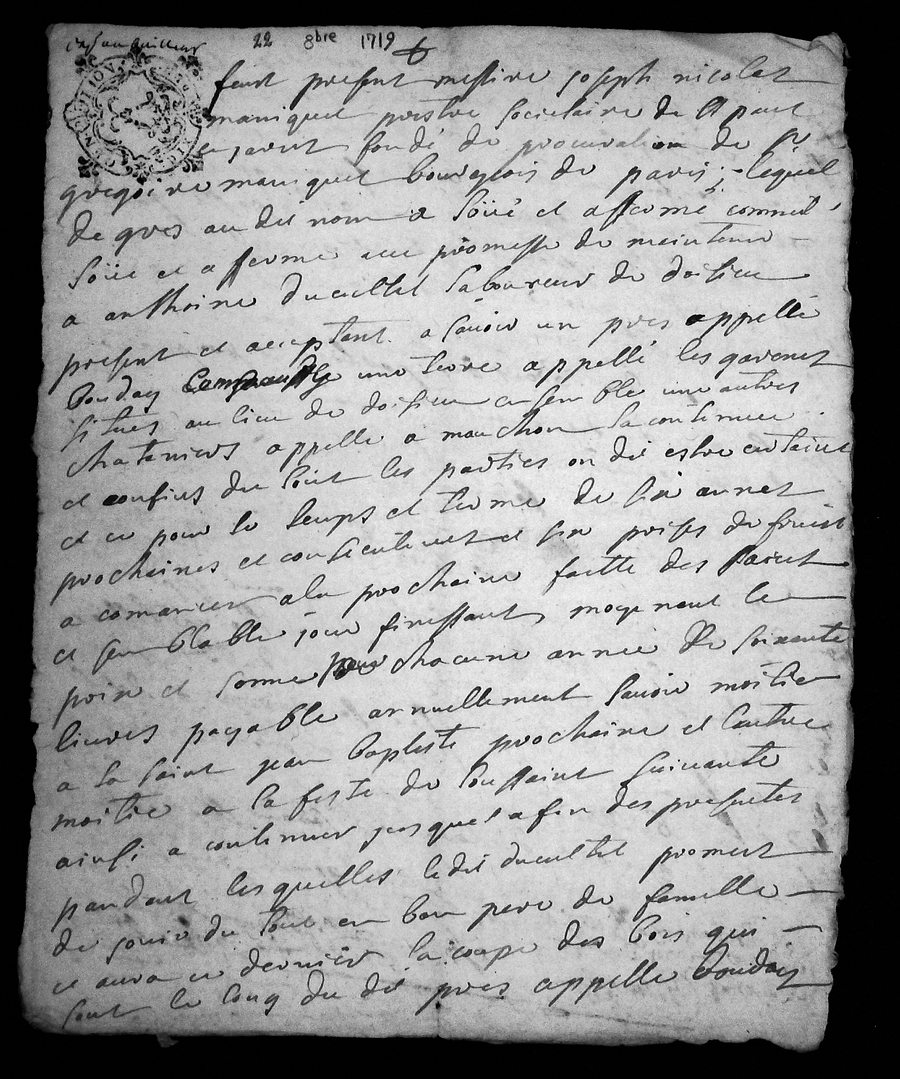 22 8bre 1719
feust present messire joseph nicolas
maniquet prestre societaire de st paul
ayant fondé de procuration de sr
gregoire maniquet bourgeois de paris; lequel
de gres audit nom a loüé et affermé comme il
loüe et afferme avec promesse de maintenir
a anthoine ducultel laboureur de doisieu
present et acceptant a savoir un pres appellé
bouday une terre appellé les garenes
situes au lieu de doisieu ensemble une autres
chataniers appelle a manchon la continue
et confins du tout les parties on dit estre certains
et ce pour le temps et terme de six annes
prochaines et consecutives et six prises de fruist
a comancer a la prochaine faitte des saint
et semblable jour finissant, moyenant le
prix et somme pour chacune année de soixante
livres payable annuellement savoir moitie
a la saint jean baptiste prochaine et l'autre
moitie a la feste de toussaint suivante
ainsi a continuer jusques a fin des presentes
pandant lesquelles ledit ducultel promest
de jouir du tout en bon pere de famille
et aura ce dernier la coupe des bois qui
sont le long du dit pres appelle bouday